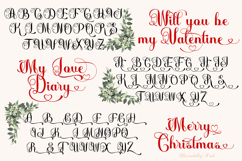 A B C D E F G H
I J K L M N O P Q R S
T U V W X Y Z
Will you be
my Valentine
My Love
Diary
A B C D E F G
H I J K L M N O P Q R S
T U V W X Y Z
A B C D E F G H
I J K L M N O P Q R
S T U V W X Y Z
Merry
Christmas